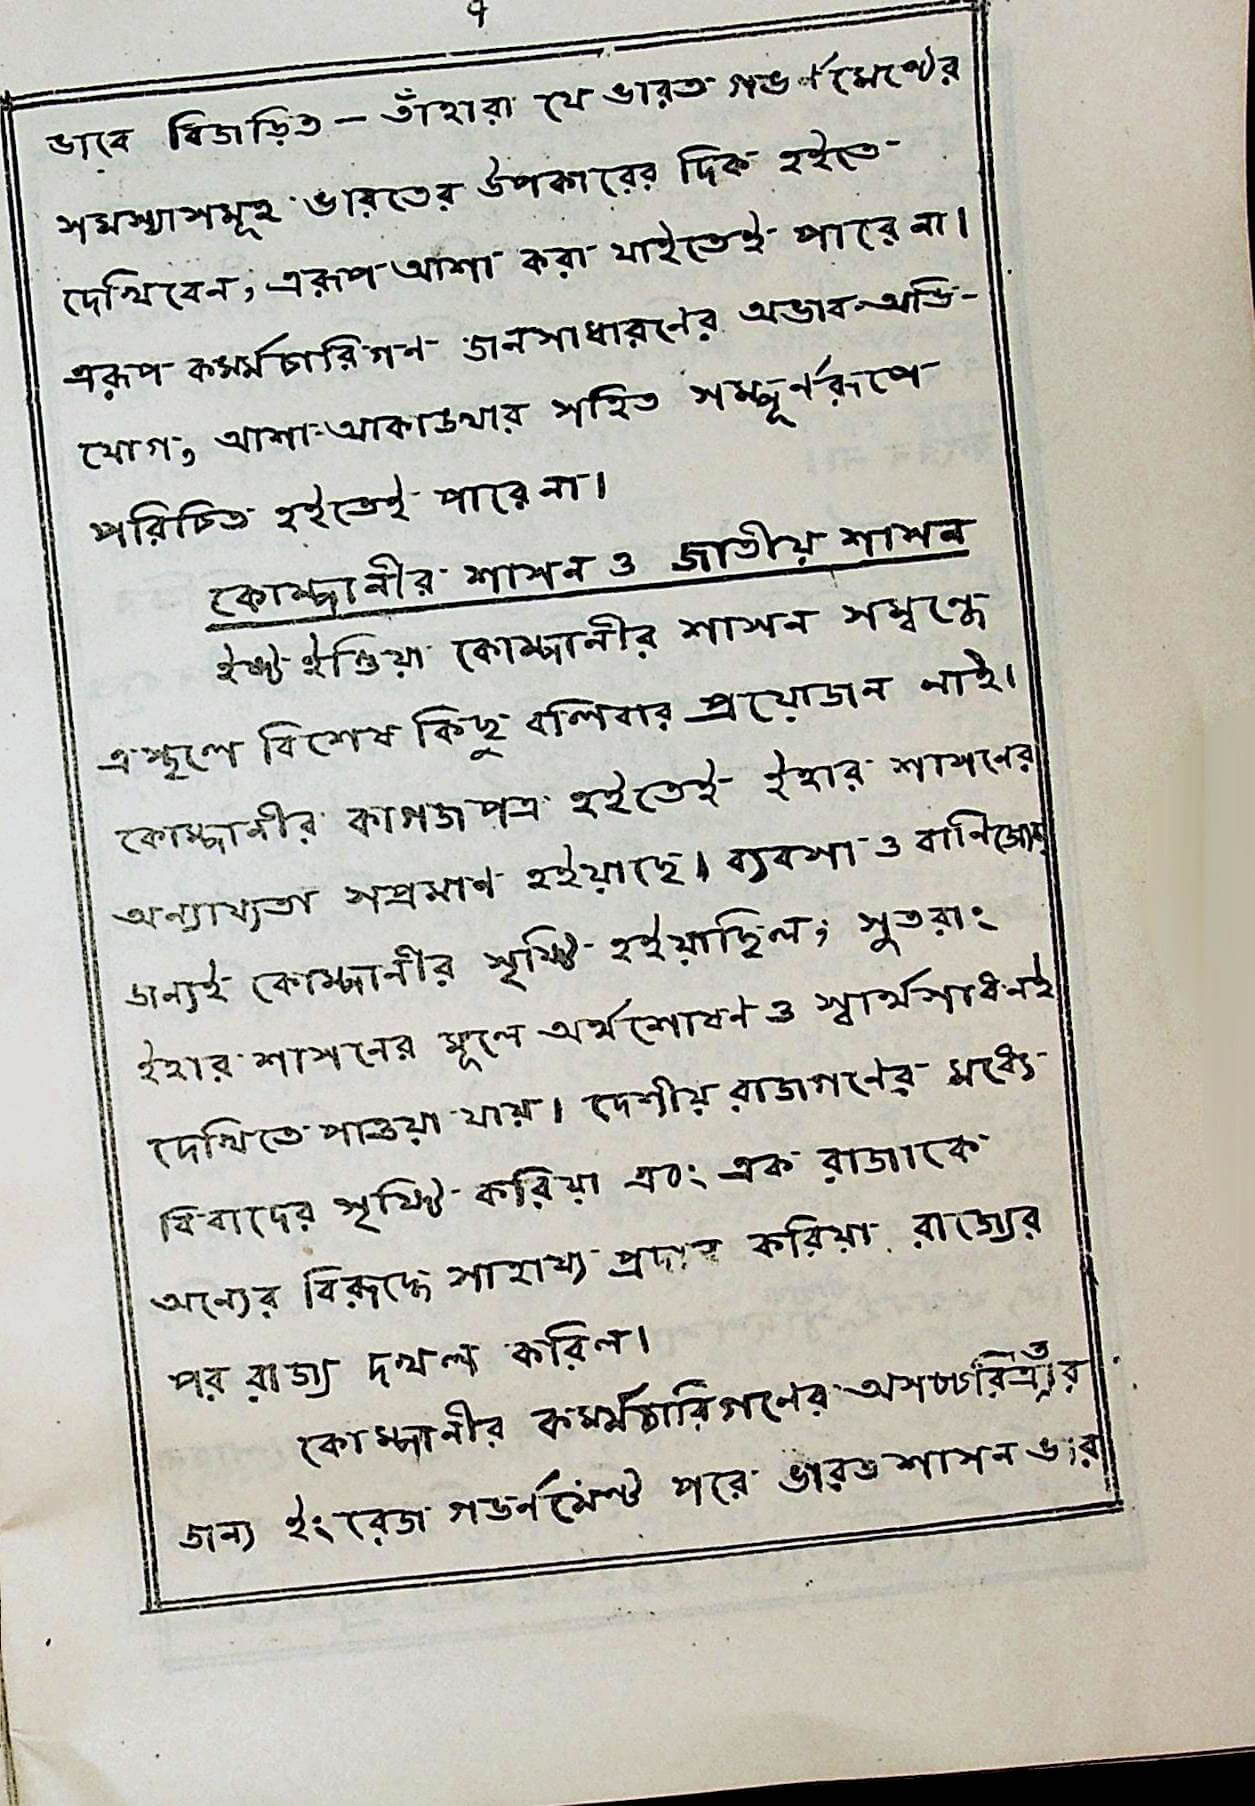 ৭
ভাবে বিজড়িত — তাঁহারা যে ভারত গভর্ণমেণ্টের
সমস্যাসমূহ ভারতের উপকারের দিক হইতে
দেখিবেন, এরূপ আশা করা যাইতেই পারে না।
এরূপ কর্ম্মচারিগণ জনসাধারণের অভাব-অভি-
যোগ, আশা-আকাঙখার সহিত সম্পূর্ণরূপে
পরিচিত হইতেই পারে না।
কোম্পানীর শাসন ও জাতীয় শাসন
ইষ্ট ইণ্ডিয়া কোম্পানীর শাসন সম্বন্ধে
এস্থলে বিশেষ কিছু বলিবার প্রয়োজন নাই।
কোম্পানীর কাগজপত্র হইতেই ইহার শাসনের
অন্যায্যতা সপ্রমাণ হইয়াছে। ব্যবসা ও বানিজ্যের
জন্যই কোম্পানীর সৃষ্টি হইয়াছিল, সুতরাং
ইহার শাসনের মূলে অর্থশোষণ ও স্বার্থসাধনই
দেখিতে পাওয়া যায়। দেশীয় রাজগণের মধ্যে
বিবাদের সৃষ্টি করিয়া এবং এক রাজাকে
অন্যের বিরূদ্ধে সাহায্য প্রদান করিয়া রাজ্যের
পর রাজ্য দখল করিল।
কোম্পানীর কর্ম্মচারিগণের অসচ্চরিত্রতার
জন্য ইংরেজ গভর্নমেন্ট পরে ভারত শাসন ভার